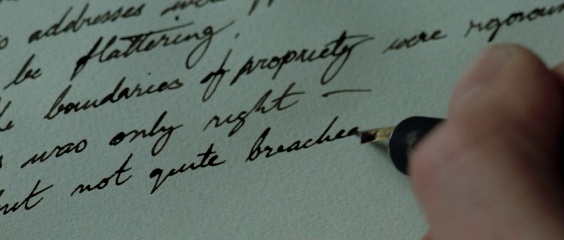 addresses were
be flattering,
boundaries of propriety were rigorous
was only right —
but not quite breached